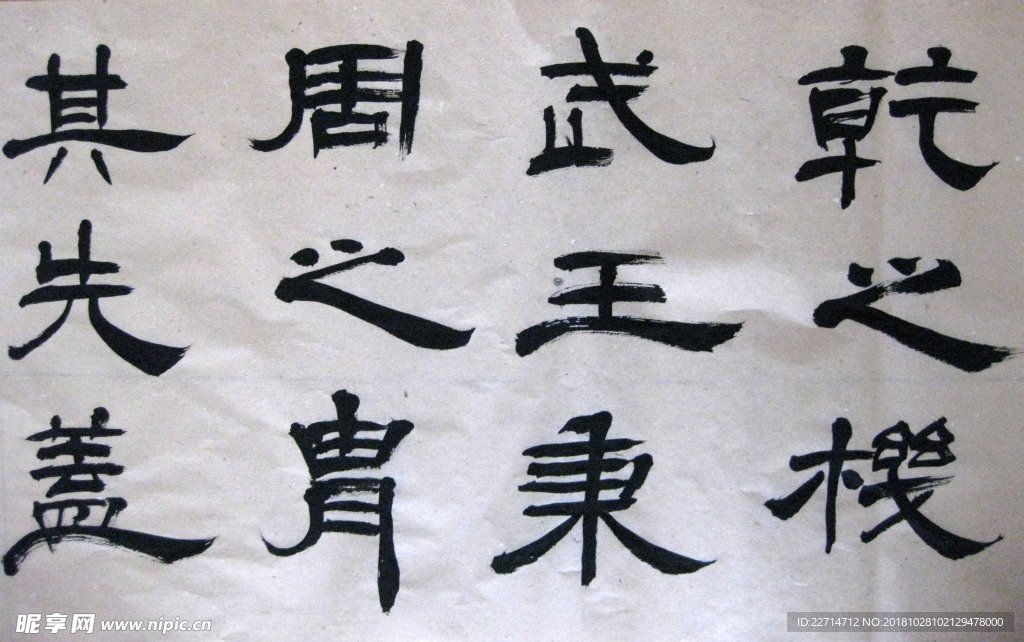 乾之機
武王秉
周之胄
其先蓋
昵享网 www.nipic.cn
ID:22714712 NO:20181028102129478000